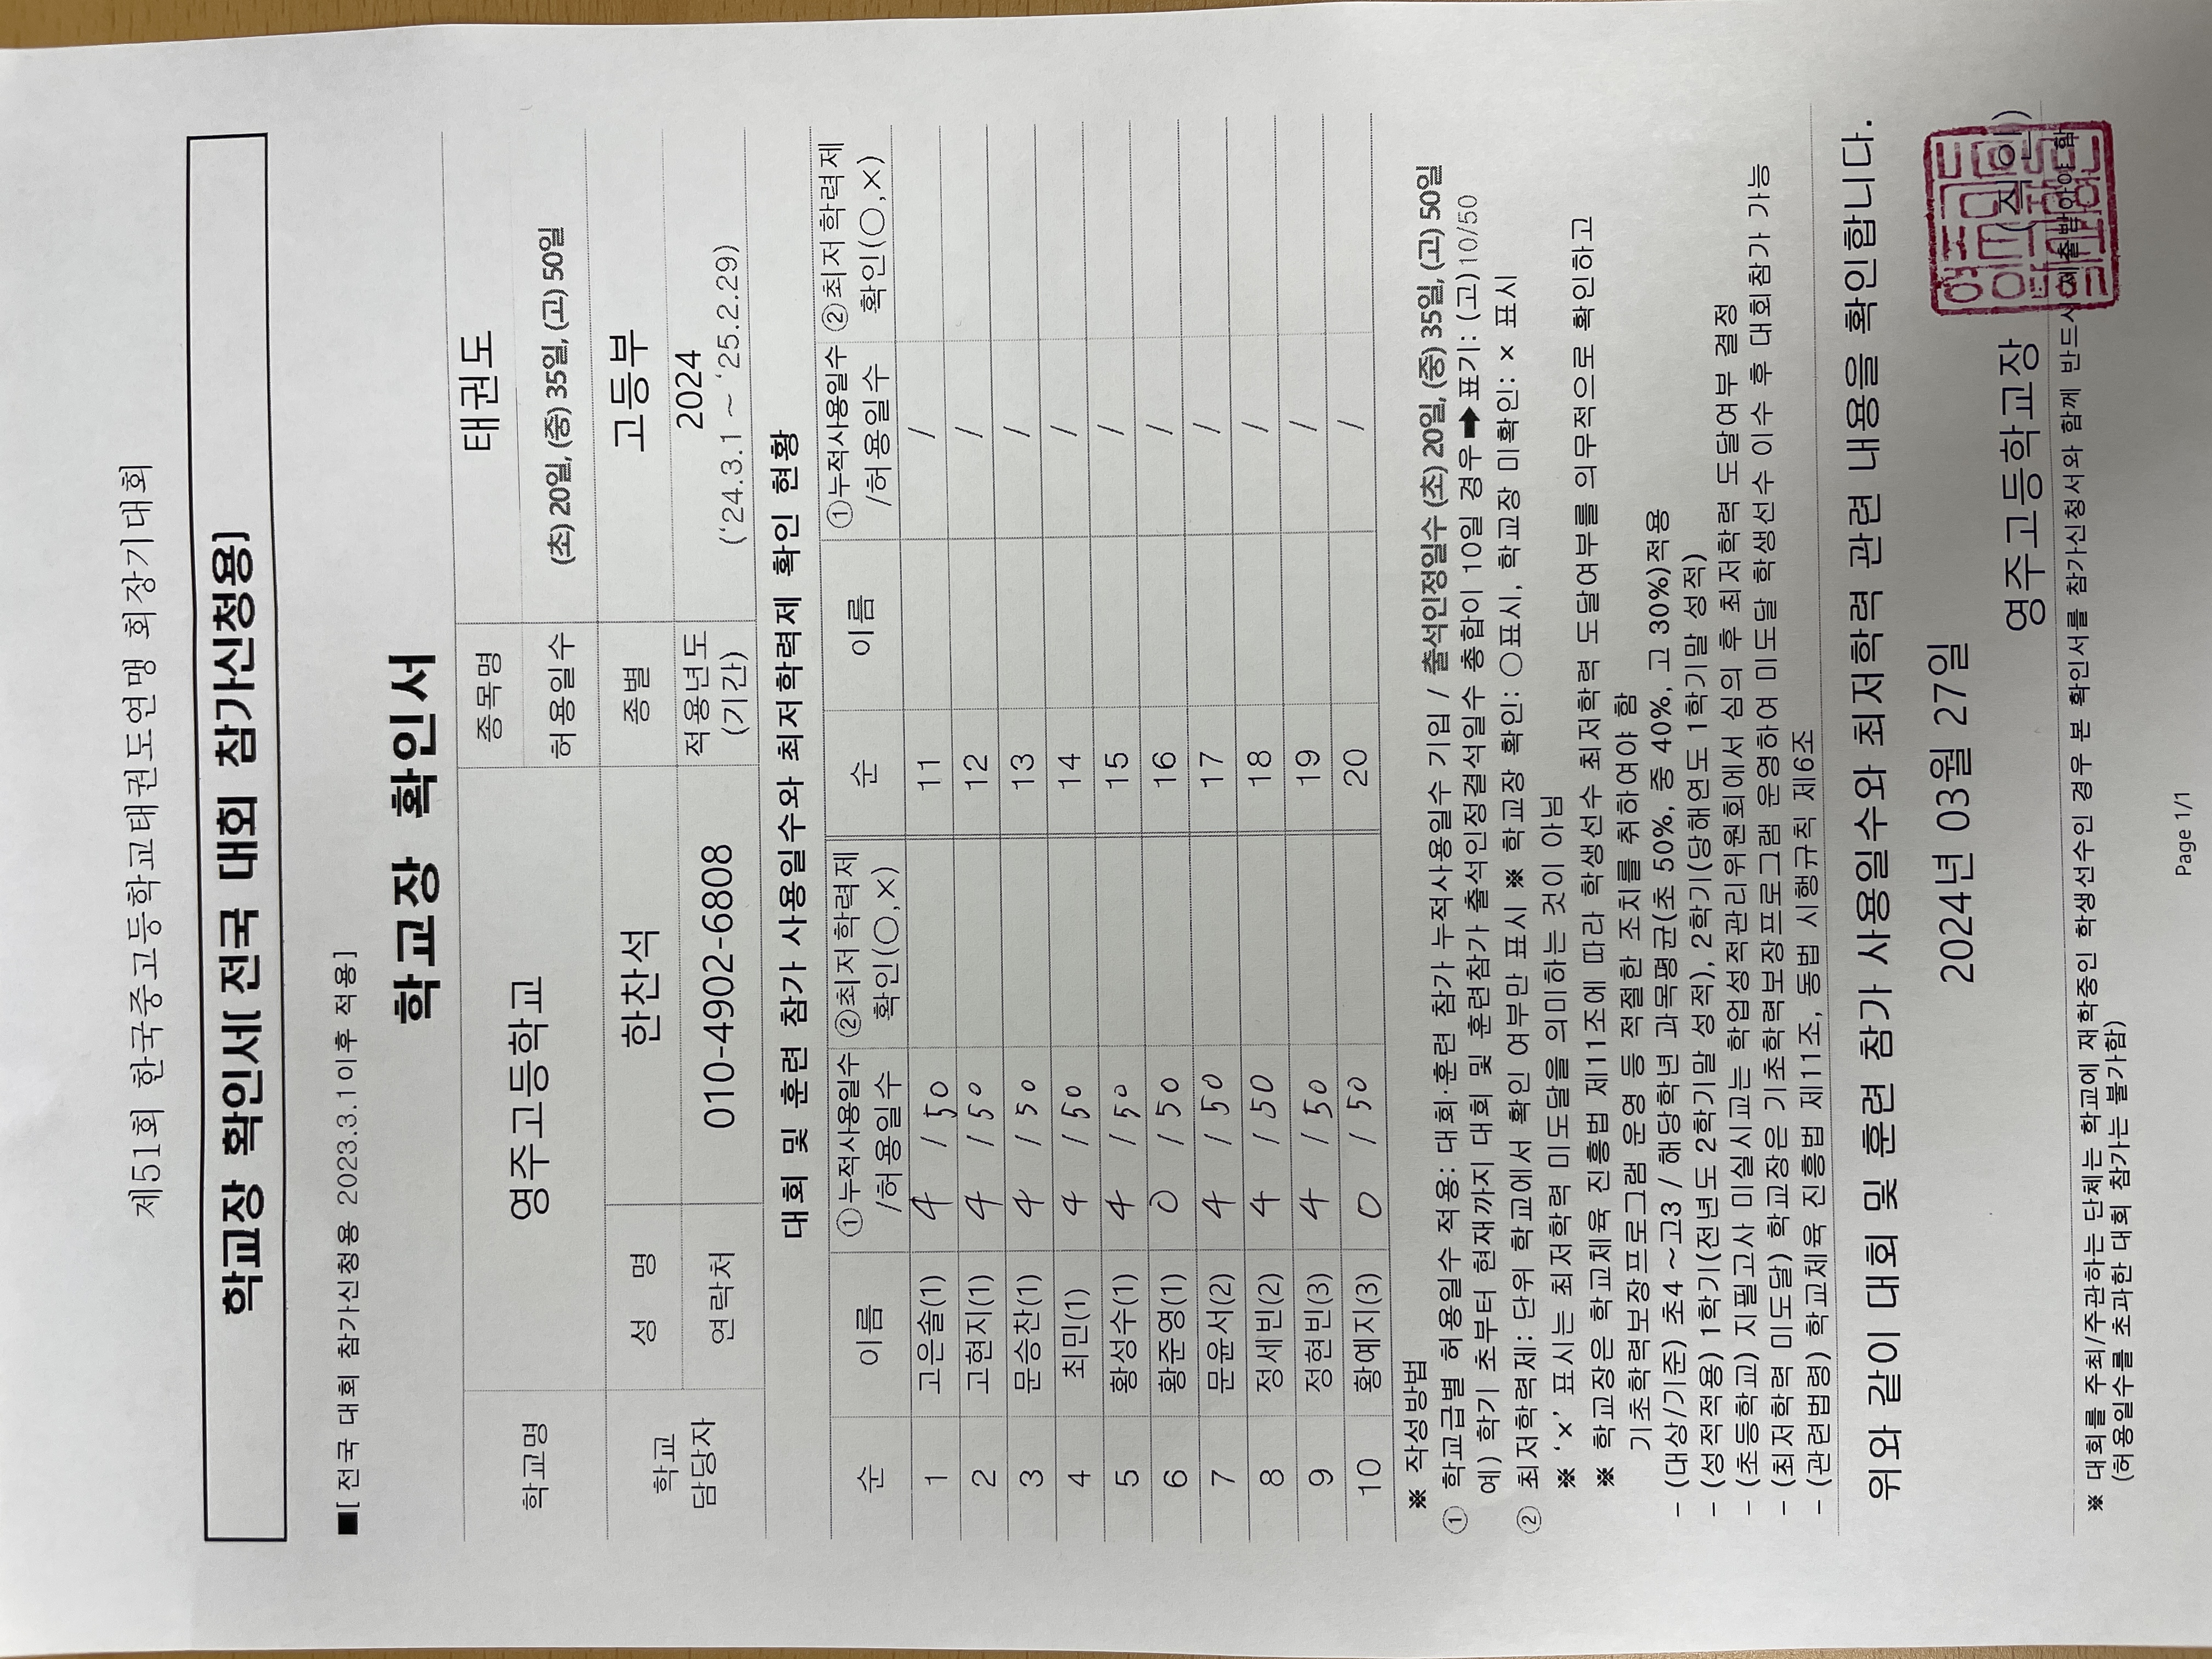 제51회 한국중고등학교태권도연맹 회장기대회
학교장 확인서[ 전국 대회 참가신청용]
■[ 전국 대회 참가신청용 2023.3.1이후 적용]
학교장 확인서
학교명 영주고등학교 종목명 태권도
허용일수 (초) 20일, (중) 35일, (고) 50일
학교 담당자 성 명 한찬석 종별 고등부
연락처 010-4902-6808 적용년도 (기간) 2024 ('24.3.1 ~ '25.2.29)
대회 및 훈련 참가 사용일수와 최저학력제 확인 현황
순 이름 ①누적사용일수 /허용일수 ②최저학력제 확인(○,×) 순 이름 ①누적사용일수 /허용일수 ②최저학력제 확인(○,×)
1 고은솔(1) 4 / 50 11 /
2 고현지(1) 4 / 50 12 /
3 문승찬(1) 4 / 50 13 /
4 최민(1) 4 / 50 14 /
5 황성수(1) 4 / 50 15 /
6 황준영(1) 0 / 50 16 /
7 문윤서(2) 4 / 50 17 /
8 정세빈(2) 4 / 50 18 /
9 정현빈(3) 4 / 50 19 /
10 황예지(3) 0 / 50 20 /
※ 작성방법
① 학교급별 허용일수 적용: 대회·훈련 참가 누적사용일수 기입 / 출석인정일수 (초) 20일, (중) 35일, (고) 50일
예) 학기 초부터 현재까지 대회 및 훈련참가 출석인정결석일수 총합이 10일 경우 ➡ 표기: (고) 10/50
② 최저학력제: 단위 학교에서 확인 여부만 표시 ※ 학교장 확인: ○표시, 학교장 미확인: × 표시
※ '×' 표시는 최저학력 미도달을 의미하는 것이 아님
※ 학교장은 학교체육 진흥법 제11조에 따라 학생선수 최저학력 도달여부를 의무적으로 확인하고
기초학력보장프로그램 운영 등 적절한 조치를 취하여야 함
- (대상/기준) 초4 ~고3 / 해당학년 과목평균(초 50%, 중 40%, 고 30%)적용
- (성적적용) 1학기(전년도 2학기말 성적), 2학기(당해연도 1학기말 성적)
- (초등학교) 지필고사 미실시교는 학업성적관리위원회에서 심의 후 최저학력 도달여부 결정
- (최저학력 미도달) 학교장은 기초학력보장프로그램 운영하여 미도달 학생선수 이수 후 대회참가 가능
- (관련법령) 학교체육 진흥법 제11조, 동법 시행규칙 제6조
위와 같이 대회 및 훈련 참가 사용일수와 최저학력 관련 내용을 확인합니다.
2024년 03월 27일
영주고등학교장 (직인)
※ 대회를 주최/주관하는 단체는 학교에 재학중인 학생선수인 경우 본 확인서를 참가신청서와 함께 반드시 제출받아야 함
(허용일수를 초과한 대회 참가는 불가함)
Page 1/1